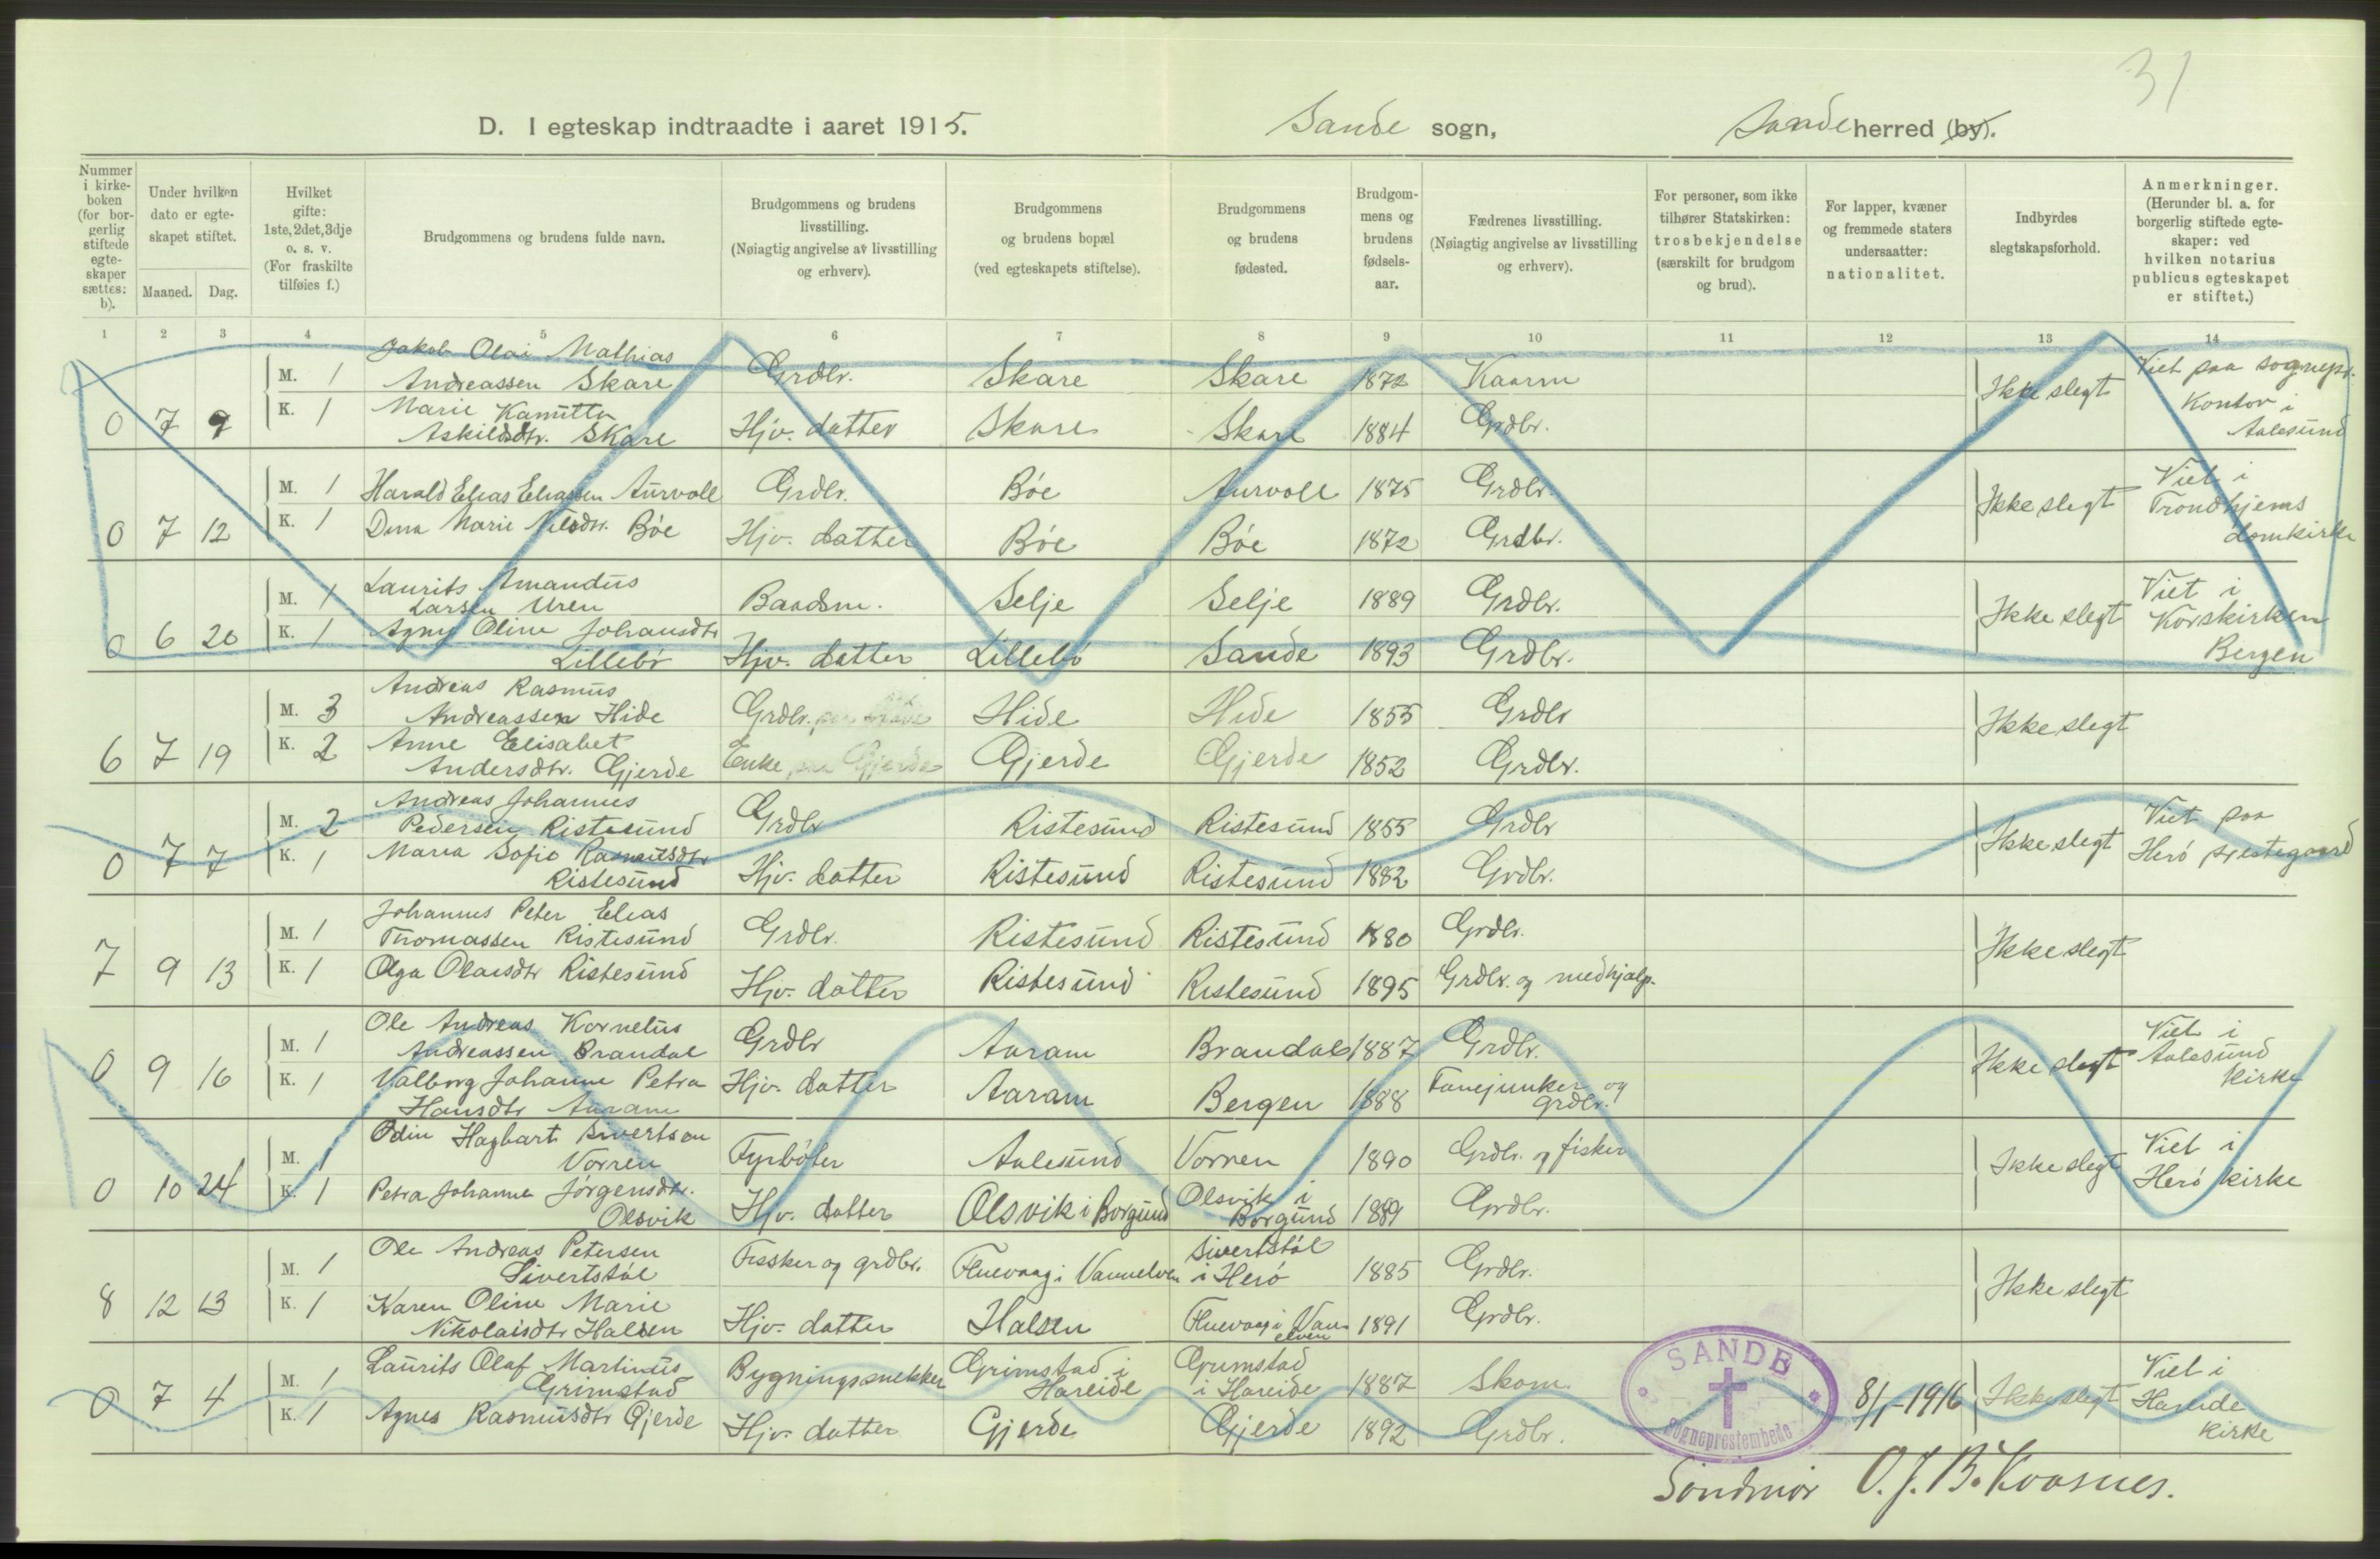 31
D. I egteskap indtraadte i aaret 1915. Sande sogn, Sande herred (by).
Nummer i kirke-boken (for bor-gerlig stiftede egte-skaper sættes: b).
Under hvilken dato er egte-skapet stiftet.
Maaned. Dag.
Hvilket gifte: 1ste, 2det, 3dje o. s. v. (For fraskilte tilføies f.)
Brudgommens og brudens fulde navn.
Brudgommens og brudens livsstilling. (Nøiagtig angivelse av livsstilling og erhverv).
Brudgommens og brudens bopæl (ved egteskapets stiftelse).
Brudgommens og brudens fødested.
Brudgom-mens og brudens fødsels-aar.
Fædrenes livsstilling. (Nøiagtig angivelse av livsstilling og erhverv).
For personer, som ikke tilhører Statskirken: trosbekjendelse (særskilt for brudgom og brud).
For lapper, kvæner og fremmede staters undersaatter: nationalitet.
Indbyrdes slegtskapsforhold.
Anmerkninger. (Herunder bl. a. for borgerlig stiftede egte-skaper: ved hvilken notarius publicus egteskapet er stiftet.)
1 2 3 4 5 6 7 8 9 10 11 12 13 14
M. 1 Jakob Olai Mathias
Andreassen Skare Grdbr. Skare Skare 1872 Kaarm Ikke slegt Viet paa sognepr.
kontor i
Aalesund
0 7 9 K. 1 Marie Kamitta
Askildsdtr. Skare Hjv. datter Skare Skare 1884 Grdbr.
M. 1 Harald Elias Eliassen Aurvoll Grdbr. Böe Aurvoll 1875 Grdbr. Ikke slegt Viet i
Trondhjems
domkirke
0 7 12 K. 1 Dina Marie Nilsdtr. Böe Hjv. datter Böe Böe 1872 Grdbr.
M. 1 Laurits Amandus
Larsen Uren Baadsm. Selje Selje 1889 Grdbr. Ikke slegt Viet i
Korskirken
Bergen
0 6 20 K. 1 Agny Oline Johansdtr
Lillebö Hjv. datter Lillebö Sande 1893 Grdbr.
M. 3 Andreas Rasmus
Andreassen Hide Grdbr. Hide Hide 1855 Grdbr Ikke slegt
6 7 19 K. 2 Anne Elisabet
Andersdtr. Gjerde Enke paa Gjerde Gjerde Gjerde 1852 Grdbr.
M. 2 Andreas Johannes
Pedersen Ristesund Grdbr Ristesund Ristesund 1855 Grdbr Ikke slegt Viet paa
Herö prestegaard
0 7 7 K. 1 Maria Sofie Rasmusdtr
Ristesund Hjv. datter Ristesund Ristesund 1882 Grdbr.
M. 1 Johannes Peter Elias
Thomassen Ristesund Grdbr. Ristesund Ristesund 1880 Grdbr. Ikke slegt
7 9 13 K. 1 Olga Olaisdtr Ristesund Hjv. datter Ristesund Ristesund 1895 Grdbr. og medhjælp.
M. 1 Ole Andreas Kornelius
Andreassen Brandal Grdbr Aaram Brandal 1887 Grdbr. Ikke slegt Viet i
Aalesund
kirke
0 9 16 K. 1 Valborg Johanne Petra
Hansdtr Aaram Hjv. datter Aaram Bergen 1888 Fanejunker og
grdbr.
M. 1 Odin Hagbart Sivertsen
Vorren Fyrböter Aalesund Vorren 1890 Grdbr. og fisker Ikke slegt Viet i
Herö kirke
0 10 24 K. 1 Petra Johanne Jörgensdtr.
Olsvik Hjv. datter Olsvik i Borgund Olsvik i
Borgund 1889 Grdbr.
M. 1 Ole Andreas Petersen
Sivertstöl Fissker og grdbr. Fluevaag i Vannelven Sivertstöl
i Herö 1885 Grdbr. Ikke slegt
8 12 13 K. 1 Karen Oline Marie
Nikolaisdtr Halsen Hjv. datter Halsen Fluevaag i Van
elven 1891 Grdbr.
M. 1 Laurits Olaf Martinus
Grimstad Bygningssnekker Grimstad i
Hareide Grimstad
i Hareide 1887 Skom. Ikke slegt Viet i
Hareide
kirke
0 7 4 K. 1 Agnes Rasmusdtr Gjerde Hjv. datter Gjerde Gjerde 1892 Grdbr.
SANDE
Sogneprestembede
8/1-1916
Söndmör O. J. B. Kvasnes.